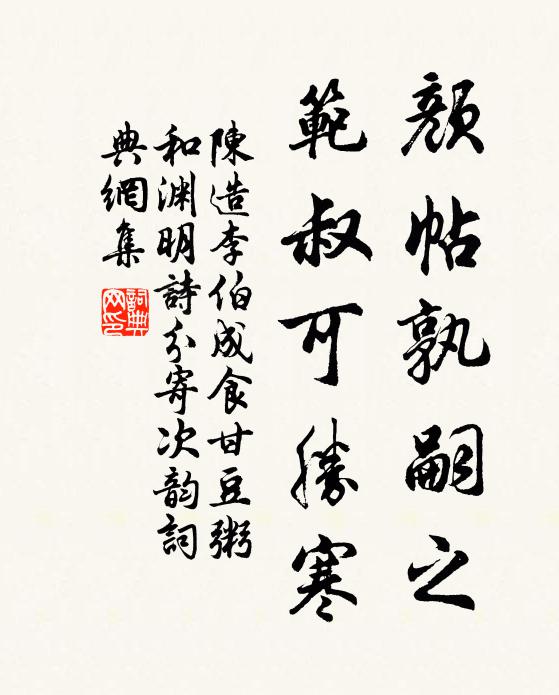 顏帖孰嗣之
範叔可勝寒
陳造李伯成食甘豆粥
和渊明詩分寄次韵詞
典網集
詞典网印